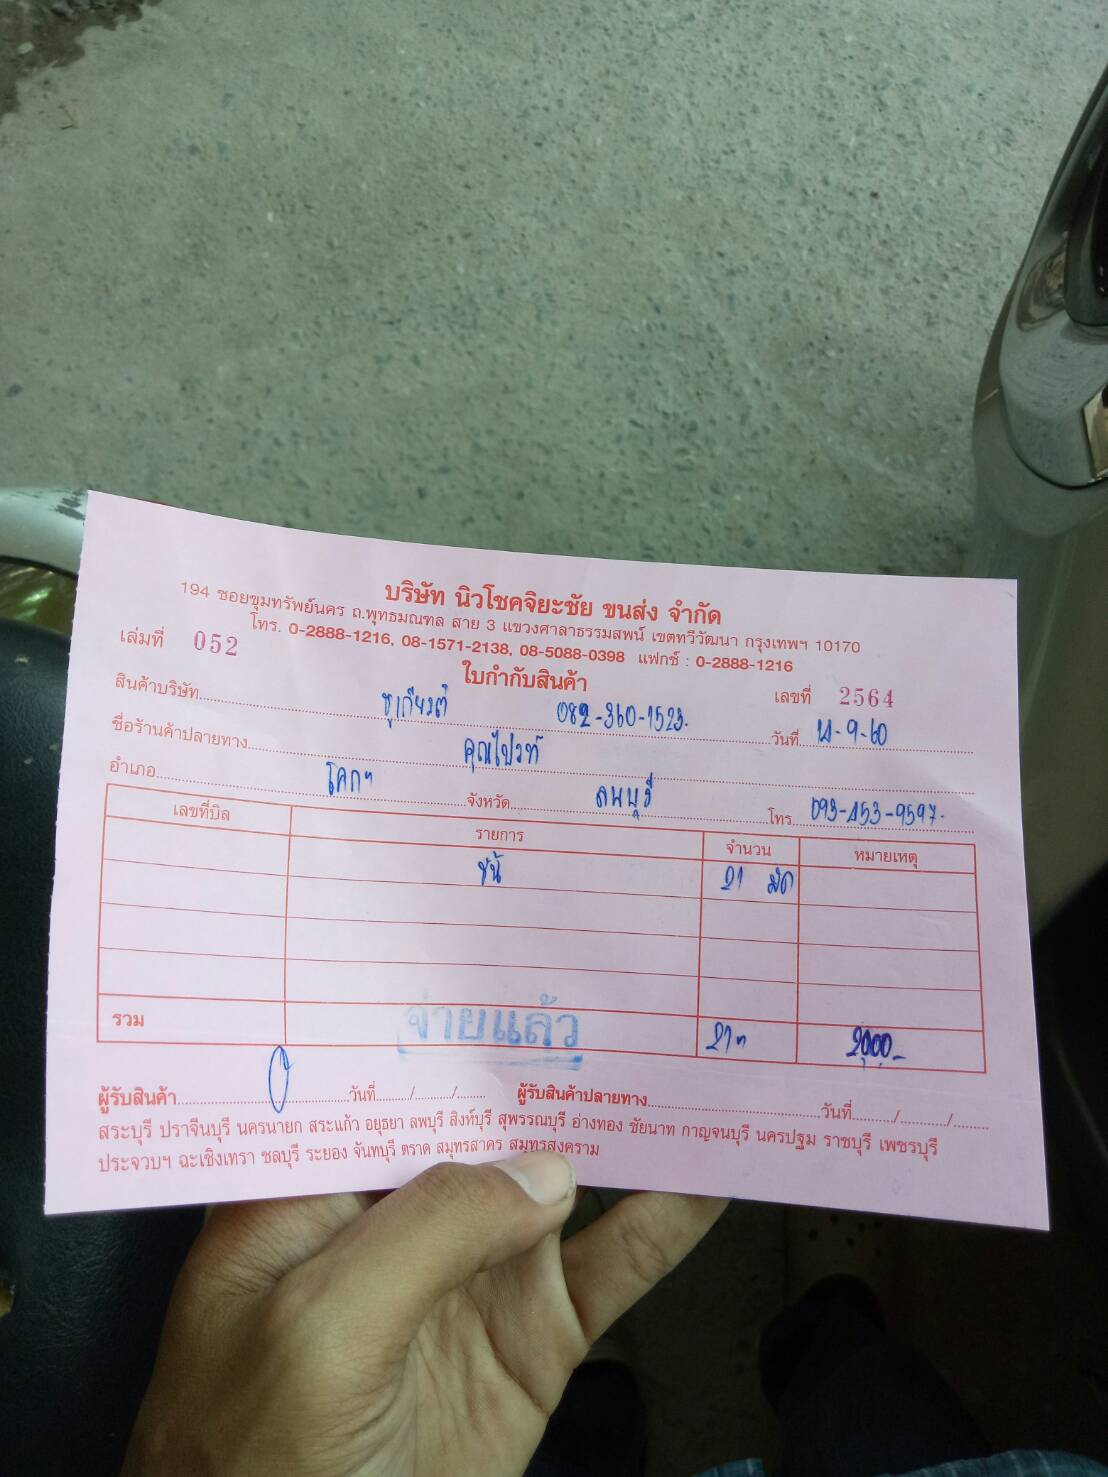 บริษัท นิวโชคจิยะชัย ขนส่ง จำกัด
194 ซอยขุมทรัพย์นคร ถ.พุทธมณฑล สาย 3 แขวงศาลาธรรมสพน์ เขตทวีวัฒนา กรุงเทพฯ 10170
โทร. 0-2888-1216, 08-1571-2138, 08-5088-0398 แฟกซ์ : 0-2888-1216
เล่มที่ 052
ใบกำกับสินค้า
เลขที่ 2564
สินค้าบริษัท ชูเกียรติ 082-360-1523. วันที่ -9-60
ชื่อร้านค้าปลายทาง คุณไปรท์
อำเภอ โคกฯ จังหวัด ลพบุรี โทร 093-453-9597.
เลขที่บิล รายการ จำนวน หมายเหตุ
21 มัด
จ่ายแล้ว
รวม 21 2000.-
ผู้รับสินค้า วันที่ / / ผู้รับสินค้าปลายทาง วันที่ / /
สระบุรี ปราจีนบุรี นครนายก สระแก้ว อยุธยา ลพบุรี สิงห์บุรี สุพรรณบุรี อ่างทอง ชัยนาท กาญจนบุรี นครปฐม ราชบุรี เพชรบุรี
ประจวบฯ ฉะเชิงเทรา ชลบุรี ระยอง จันทบุรี ตราด สมุทรสาคร สมุทรสงคราม